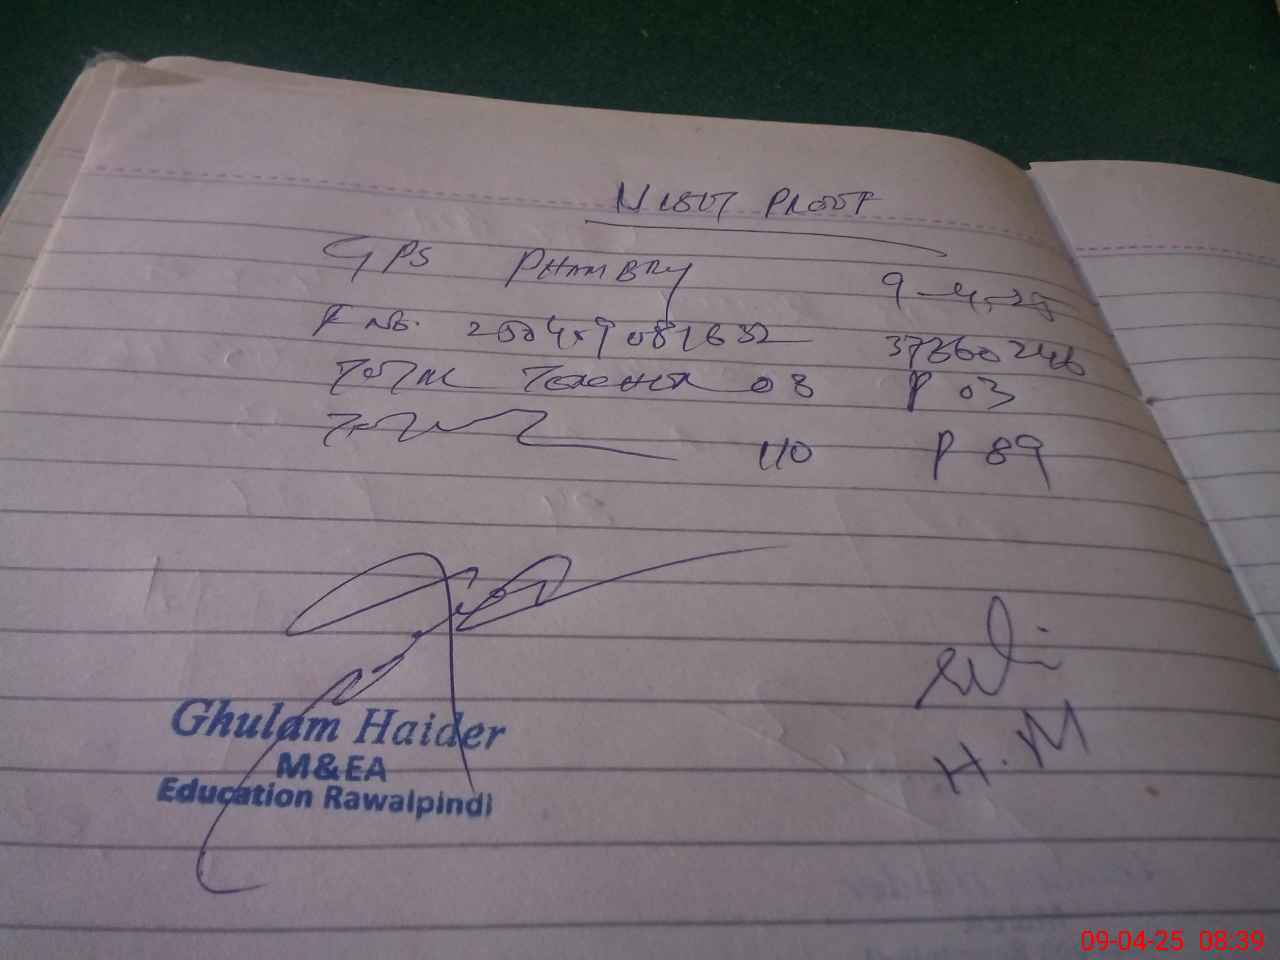 VISIT PROOF
GPS PHAMBRY 9-4-25
F No. 37360246
TOTAL TEACHER 08 P 03
110 P 89
H.M
Ghulam Haider
M&EA
Education Rawalpindi
09-04-25 08:39